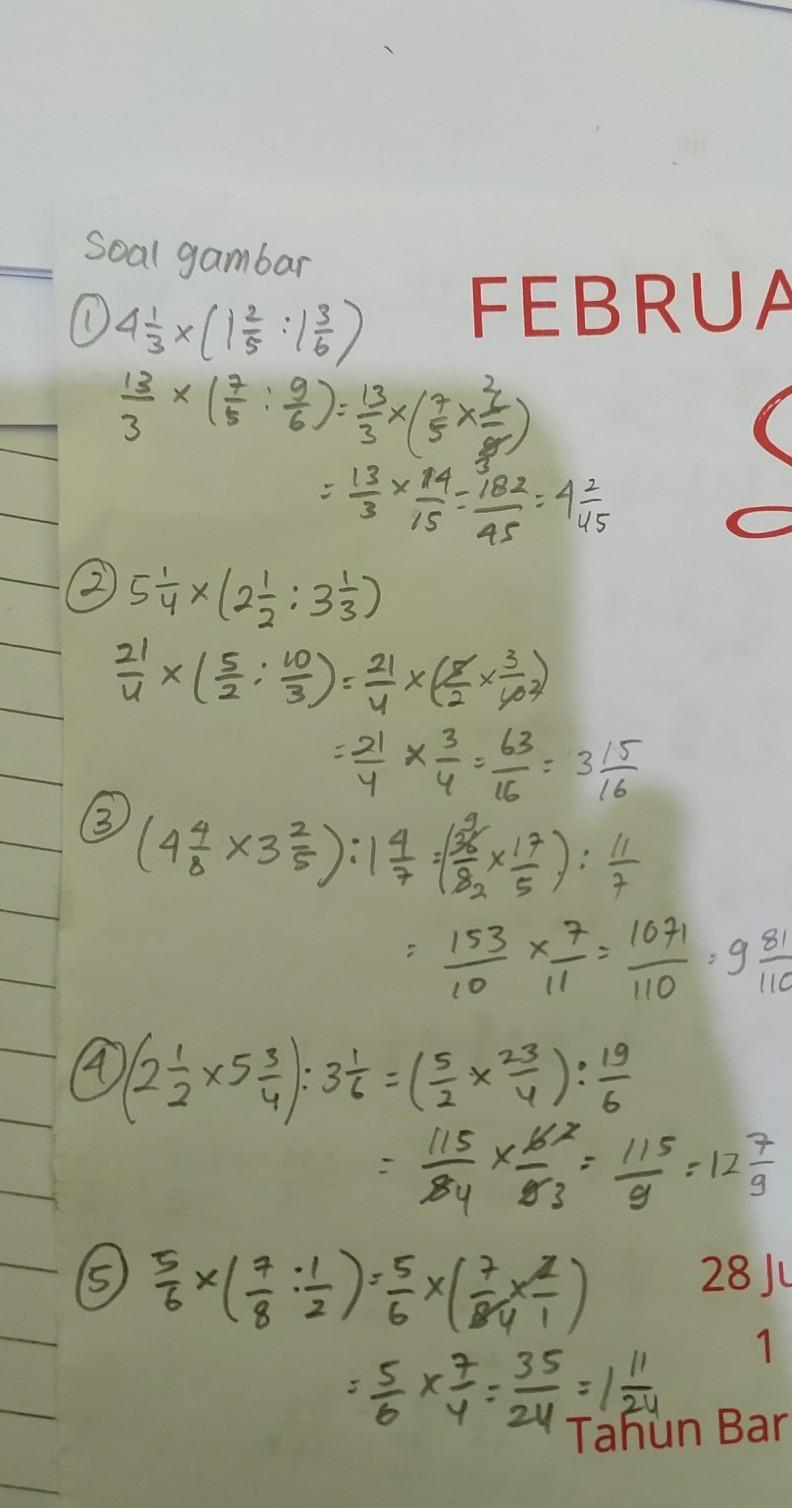 Soal gambar
FEBRUA
① 4 1/3 × (1 2/5 : 1 3/6)
13/3 × (7/5 : 9/6) = 13/3 × (7/5 × 2/3)
= 13/3 × 14/15 = 182/45 = 4 2/45
② 5 1/4 × (2 1/2 : 3 1/3)
21/4 × (5/2 : 10/3) = 21/4 × (5/2 × 3/10 2)
= 21/4 × 3/4 = 63/16 = 3 15/16
③ (4 4/8 × 3 2/5) : 1 4/7 = (36 9/8 2 × 17/5) : 11/7
= 153/10 × 7/11 = 1071/110 = 9 81/110
④ (2 1/2 × 5 3/4) : 3 1/6 = (5/2 × 23/4) : 19/6
= 115/8 4 × 6 2/9 3 = 115/9 = 12 7/9
⑤ 5/6 × (7/8 : 1/2) = 5/6 × (7/8 4 × 2/1)
28 Ju
= 5/6 × 7/4 = 35/24 = 1 11/24
1
Tahun Bar